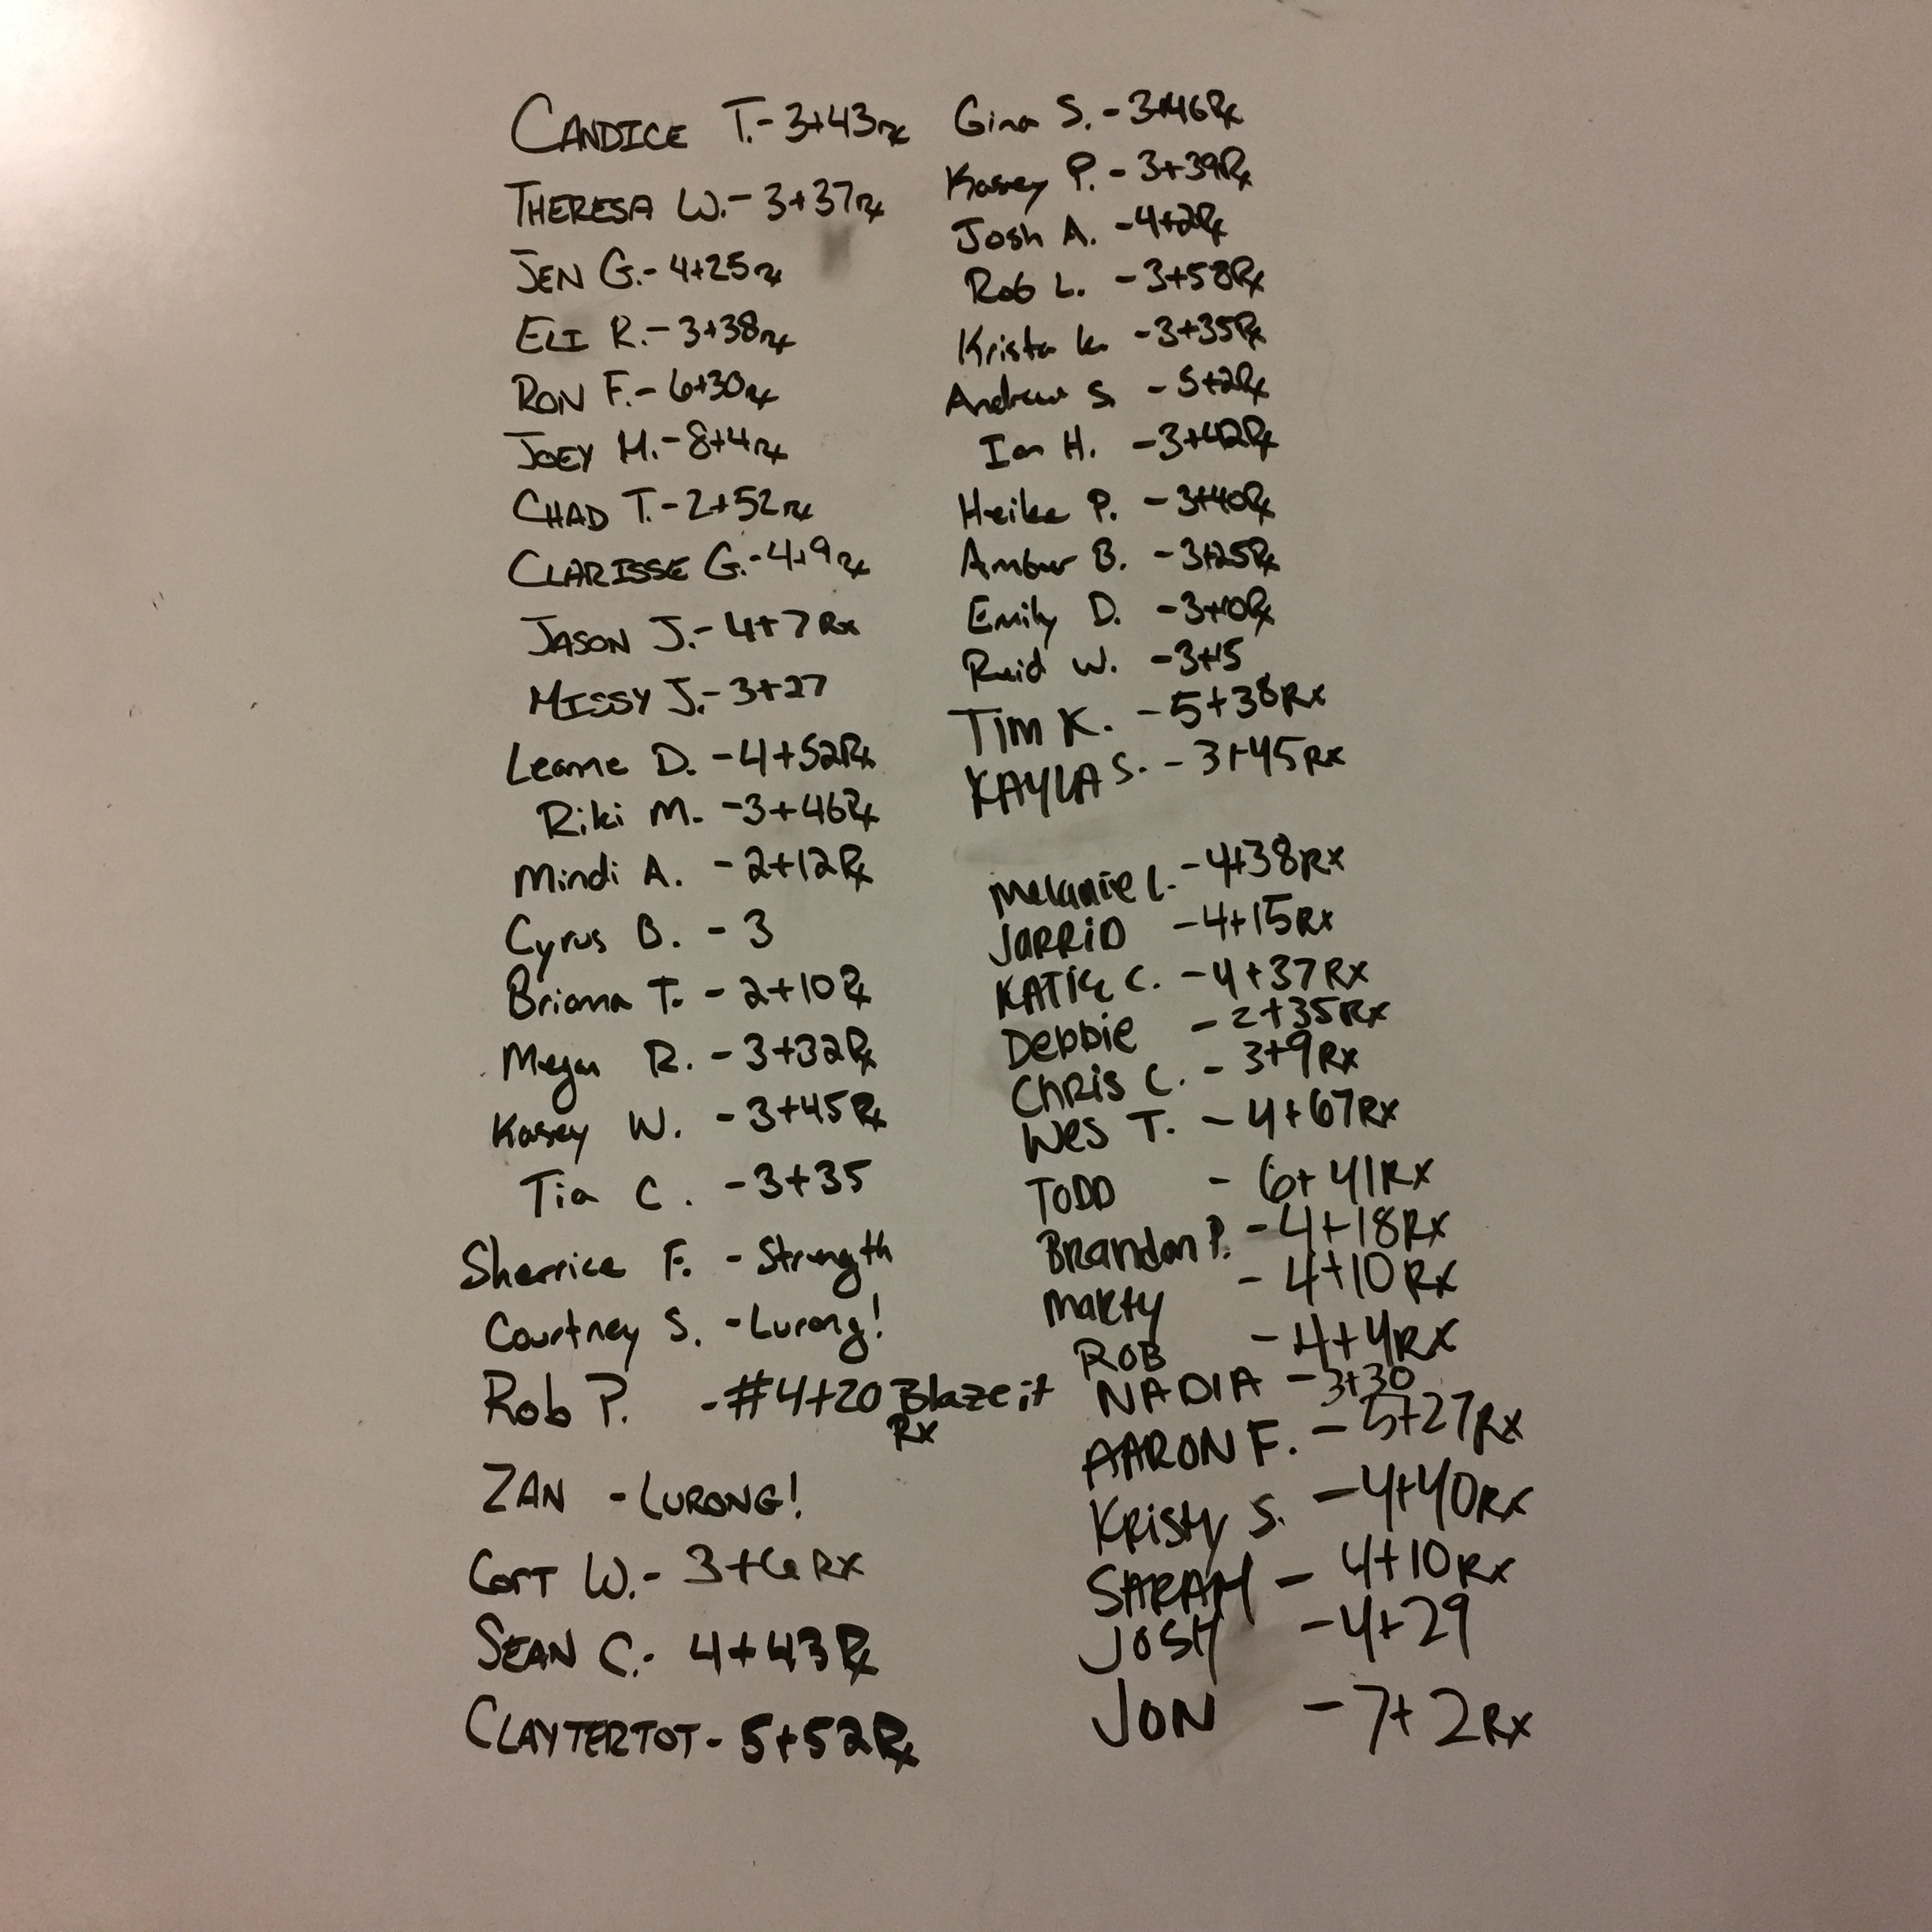 CANDICE T.- 3+43Rx
THERESA W.- 3+37Rx
JEN G.- 4+25Rx
ELI R.- 3+38Rx
RON F.- 6+30Rx
JOEY M.- 8+4Rx
CHAD T.- 2+52Rx
CLARISSE G.- 4+9Rx
JASON J.- 4+7Rx
MISSY J.- 3+27
Leanne D. - 4+52Rx
Riki M. - 3+46Rx
Mindi A. - 2+12Rx
Cyrus B. - 3
Brianna T. - 2+10Rx
Megan R. - 3+32Rx
Kasey W. - 3+45Rx
Tia C. - 3+35
Sherrice F. - Strength
Courtney S. - Lurong!
Rob P. - #4+20 Blaze it
Rx
ZAN - LURONG!
CORT W.- 3+6Rx
SEAN C.- 4+43Rx
CLAYTERTOT- 5+52Rx
Gina S. - 3+46Rx
Kasey P. - 3+39Rx
Josh A. - 4+2Rx
Rob L. - 3+58Rx
Krista K. - 3+35Rx
Andrew S. - 5+2Rx
Ian H. - 3+42Rx
Heike P. - 3+40Rx
Amber B. - 3+25Rx
Emily D. - 3+10Rx
Reid W. - 3+15
Tim K. - 5+38Rx
KAYLA S. - 3+45Rx
Melanie L. - 4+38Rx
JARRID - 4+15Rx
KATIE C. - 4+37Rx
Debbie - 2+35Rx
CHRIS C. - 3+9Rx
Wes T. - 4+67Rx
TODD - 6+41Rx
Brandon P. - 4+18Rx
Marty - 4+10Rx
ROB - 4+4Rx
NADIA - 3+30
AARON F. - 5+27Rx
Kristy S. - 4+40Rx
SARAH - 4+10Rx
JOSH - 4+29
JON - 7+2Rx